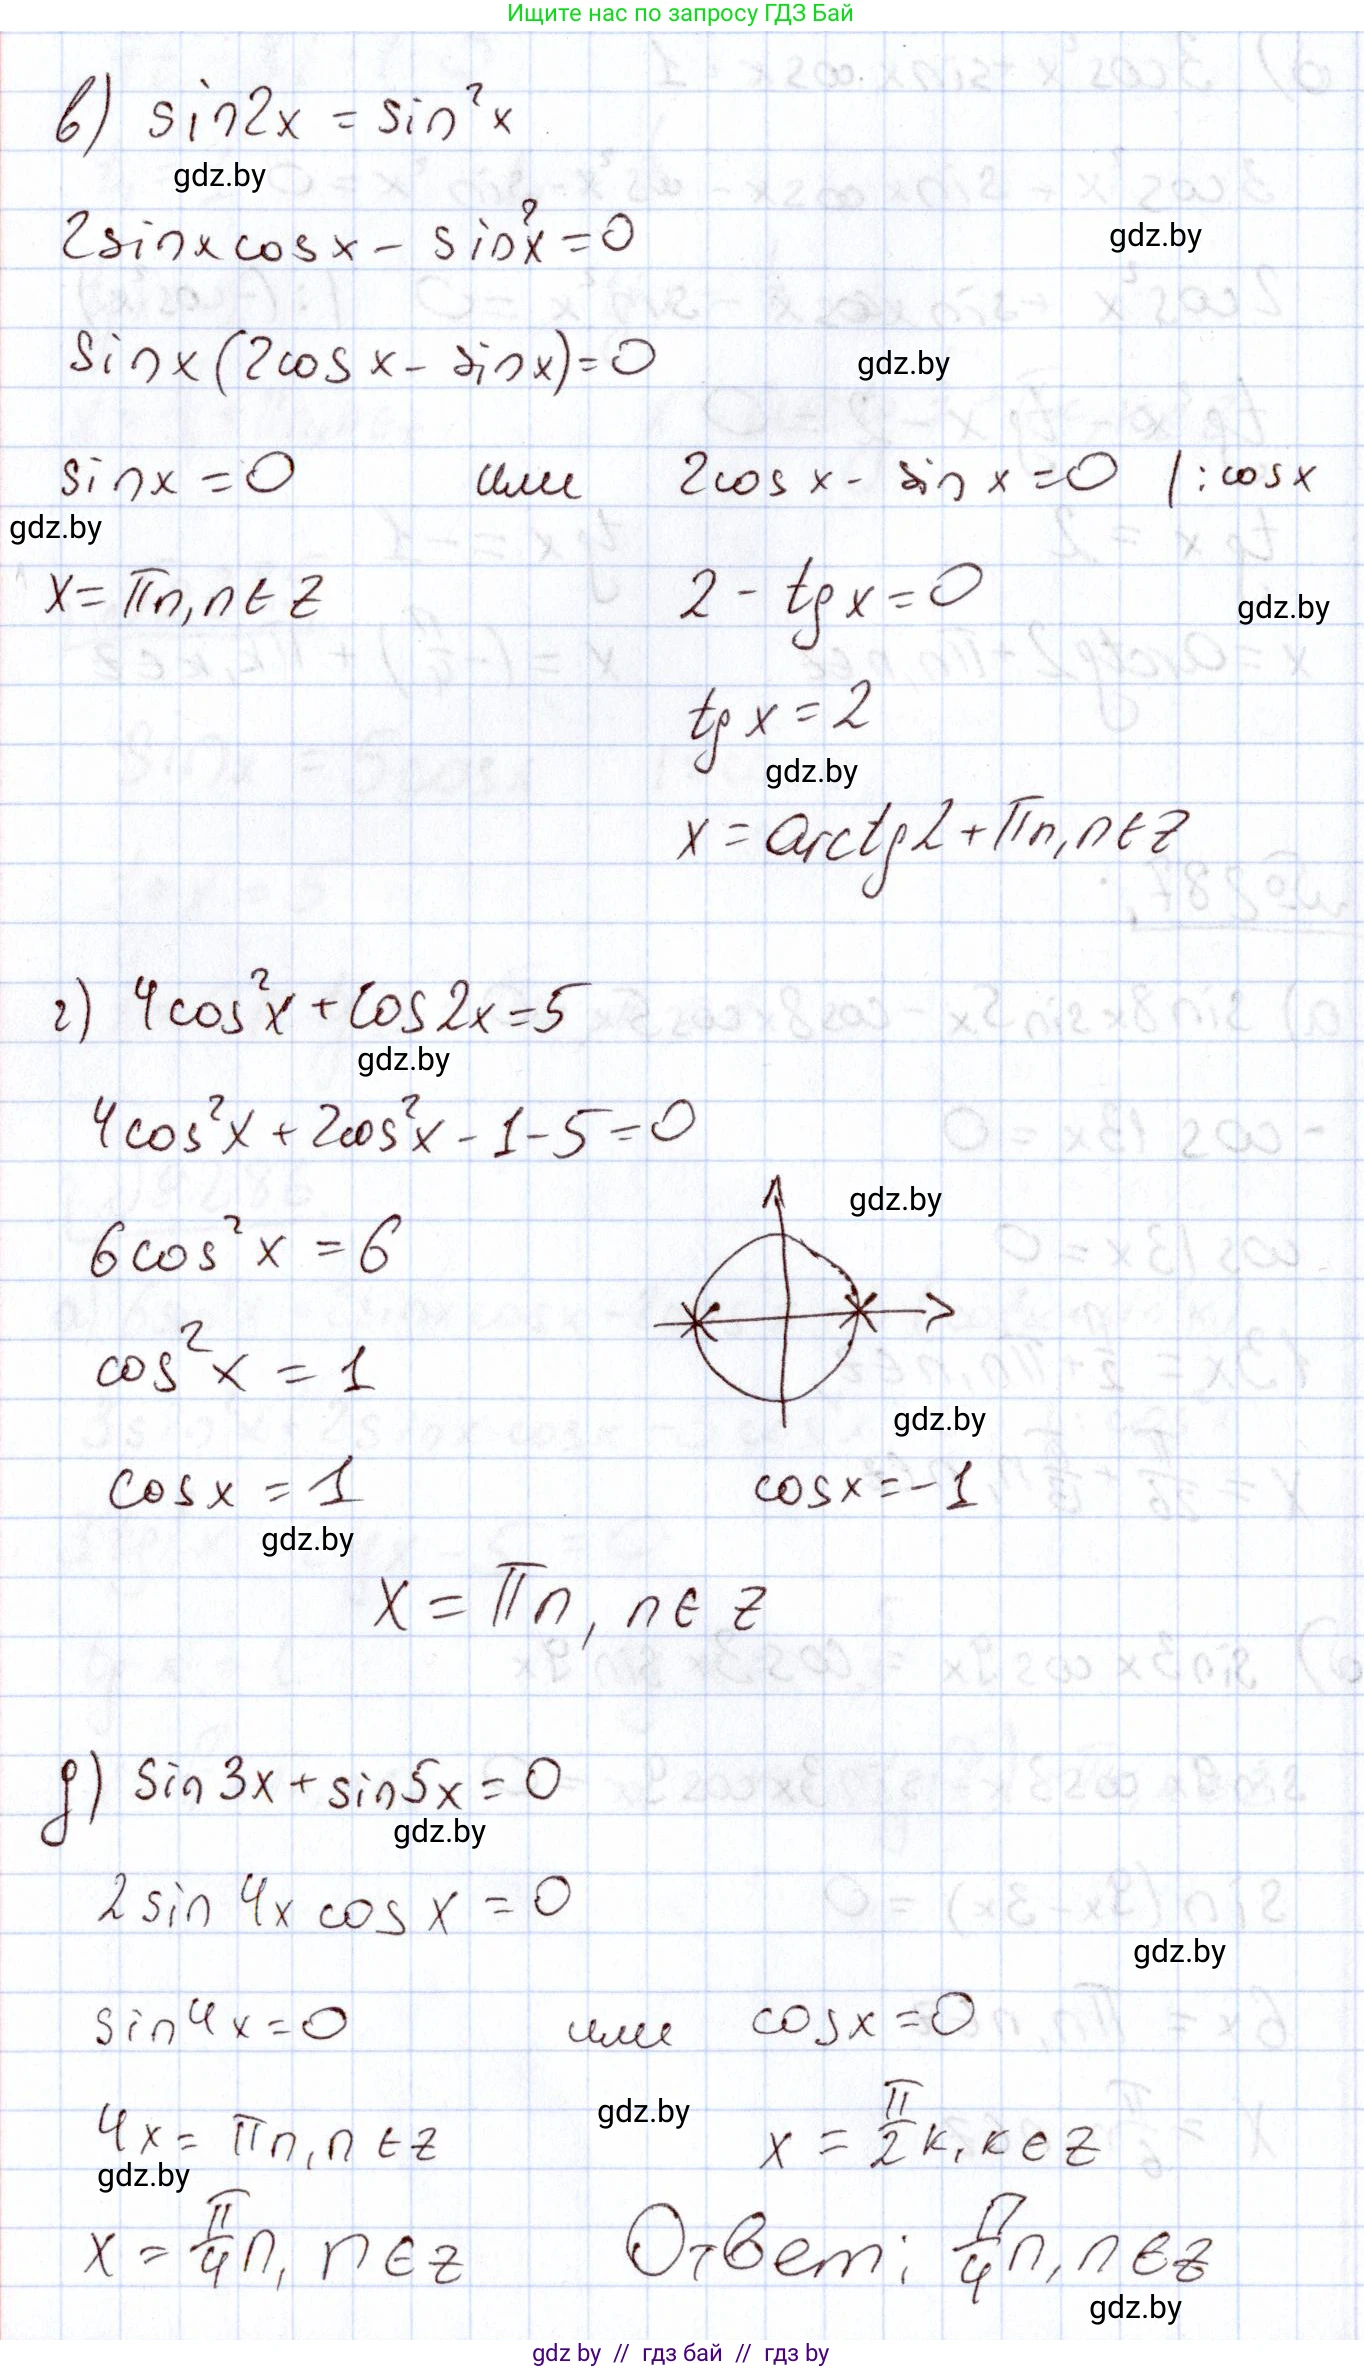 Ищите нас по запросу ГДЗ Бай
в) sin2x = sin²x
gdz.by
2sinxcosx - sin²x = 0
gdz.by
sinx(2cosx - sinx) = 0
gdz.by
sinx = 0 или 2cosx - sinx = 0 |:cosx
gdz.by
x = πn, n∈Z 2 - tgx = 0
gdz.by
tgx = 2
gdz.by
x = arctg2 + πn, n∈Z
г) 4cos²x + cos2x = 5
gdz.by
4cos²x + 2cos²x - 1 - 5 = 0
gdz.by
6cos²x = 6
cos²x = 1
gdz.by
cosx = 1 cosx = -1
gdz.by
x = πn, n∈Z
д) sin3x + sin5x = 0
gdz.by
2sin4xcosx = 0
gdz.by
sin4x = 0 или cosx = 0
gdz.by
4x = πn, n∈Z x = π/2 k, k∈Z
gdz.by
x = π/4 n, n∈Z Ответ: π/4 n, n∈Z
gdz.by
gdz by // гдз бай // гдз by